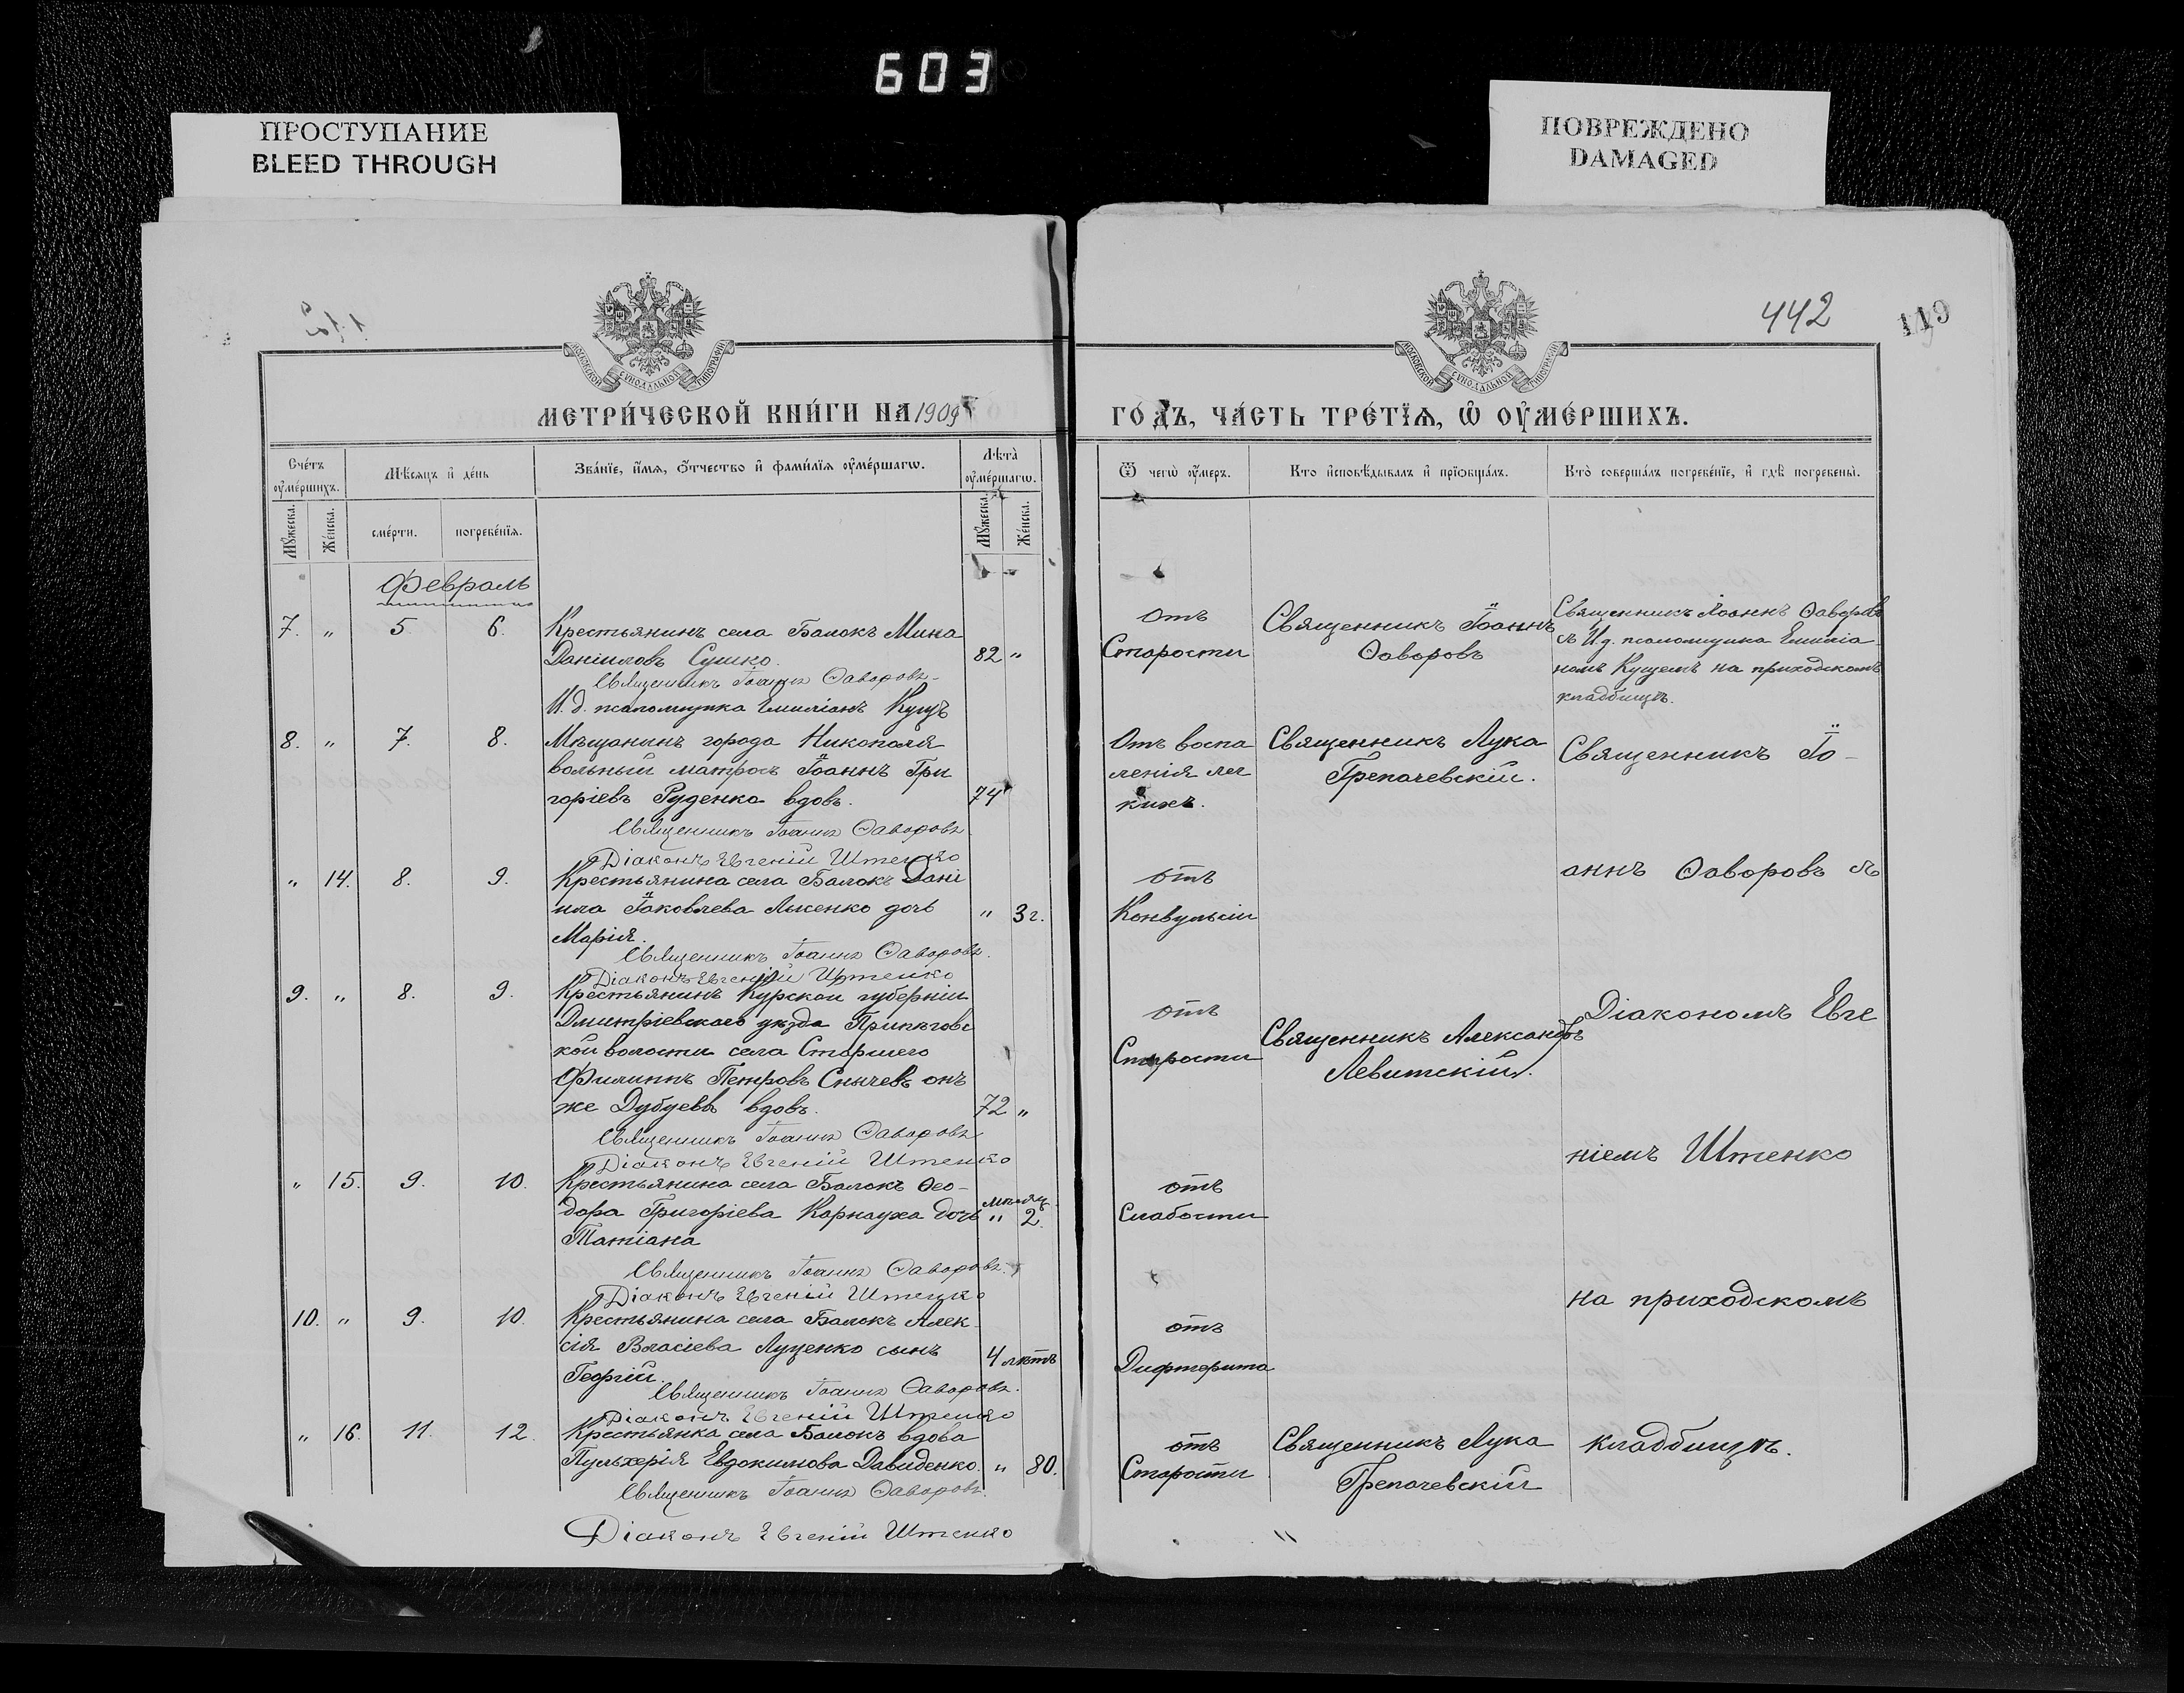 603
ПРОСТУПАНИЕ
BLEED THROUGH
ПОВРЕЖДЕНО
DAMAGED
442
119
МОСКОВСКОЙ СѴНОДАЛЬНОЙ ТИПОГРАФІИ
МОСКОВСКОЙ СѴНОДАЛЬНОЙ ТИПОГРАФІИ
МЕТРИ́ЧЕСКОЙ КНИ́ГИ НА 1909
ГО́ДЪ, ЧА́СТЬ ТРЕ́ТЇѦ, Ѡ҆ ОУ҆МЕ́РШИХЪ.
Сче́тъ оу҆ме́ршихъ.
Мѣ́сѧцъ и҆ де́нь
Зва́нїе, и҆́мѧ, ѻ҆́тчество и҆ фами́лїѧ оу҆ме́ршагѡ.
Лѣ́та̀ оу҆ме́ршагѡ.
Ѿ чегѡ̀ оу҆́меръ.
Кто̀ и҆сповѣ́дывалъ и҆ прїѡбща́лъ.
Кто̀ соверша́лъ погребе́нїе, и҆ гдѣ̀ погребены̀.
Мꙋ́жеска.
Же́нска.
сме́рти.
погребе́нїѧ.
Мꙋ́жеска.
Же́нска.
Февраль
7. " 5 6. Крестьянинъ села Балокъ Мина
Даніиловъ Сушко. 82 "
Священникъ Іоаннъ Ѳаворовъ
И. д. псаломщика Емиліанъ Кущъ
отъ
Старости
Священникъ Іоаннъ
Ѳаворовъ
Священникъ Іоаннъ Ѳаворовъ
съ И. д. псаломщика Емиліа
номъ Кущемъ на приходскомъ
кладбищѣ.
8. " 7. 8. Мѣщанинъ города Никополя
вольный матросъ Іоаннъ Гри
горіевъ Руденко вдовъ. 74
Священникъ Іоаннъ Ѳаворовъ
Діаконъ Евгеній Штенко
Отъ воспа
ленія лег
кихъ.
Священникъ Лука
Грепачевскій.
Священникъ Іо-
" 14. 8. 9. Крестьянина села Балокъ Дані
ила Іаковлева Лысенко дочь " 3 г.
Марія.
Священникъ Іоаннъ Ѳаворовъ.
Діаконъ Евгеній Штенко
отъ
Конвульсіи
аннъ Ѳаворовъ съ
9. " 8. 9. Крестьянинъ Курской губерніи
Дмитріевскаго уѣзда
кой волости села Старшего
Филиппъ Петровъ Сычевъ онъ
же Дубуевъ вдовъ. 72 "
Священникъ Іоаннъ Ѳаворовъ
Діаконъ Евгеній Штенко
отъ
Старости
Священникъ Александръ
Левитскій.
Діакономъ Евге
ніемъ Штенко
" 15. 9. 10. Крестьянина села Балокъ Ѳео-
дора Григоріева Карнауха дочь " 2. мѣсяц.
Татіана
Священникъ Іоаннъ Ѳаворовъ.
Діаконъ Евгеній Штенко
отъ
Слабости
на приходскомъ
10. " 9. 10. Крестьянина села Балокъ Алек
сія Власіева Луценко сынъ 4 лѣтъ
Георгій.
Священникъ Іоаннъ Ѳаворовъ.
Діаконъ Евгеній Штенко
отъ
Дифтерита
" 16. 11. 12. Крестьянка села Балокъ вдова
Пульхерія Евдокимова Давиденко. " 80.
Священникъ Іоаннъ Ѳаворовъ.
Діаконъ Евгеній Штенко
отъ
Старости
Священникъ Лука
Грепачевскій
кладбищѣ.